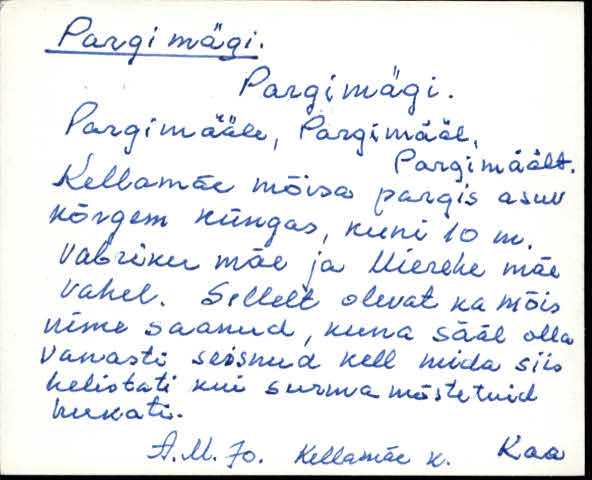 Pargimägi.
Pargimägi.
Pargimääle, Pargimääl,
Pargimäält.
Kellamäe mõisa pargis asuv
kõrgem küngas, kuni 10 m.
Vabriku mäe ja Uierehe mäe
vahel. Sellelt olevat ka mõis
nime saanud, kuna sääl olla
vanasti seisnud kell mida siis
helistati kui surmamõstetuid
hukati.
A.M. Jo. Kellamäe k. Kaa